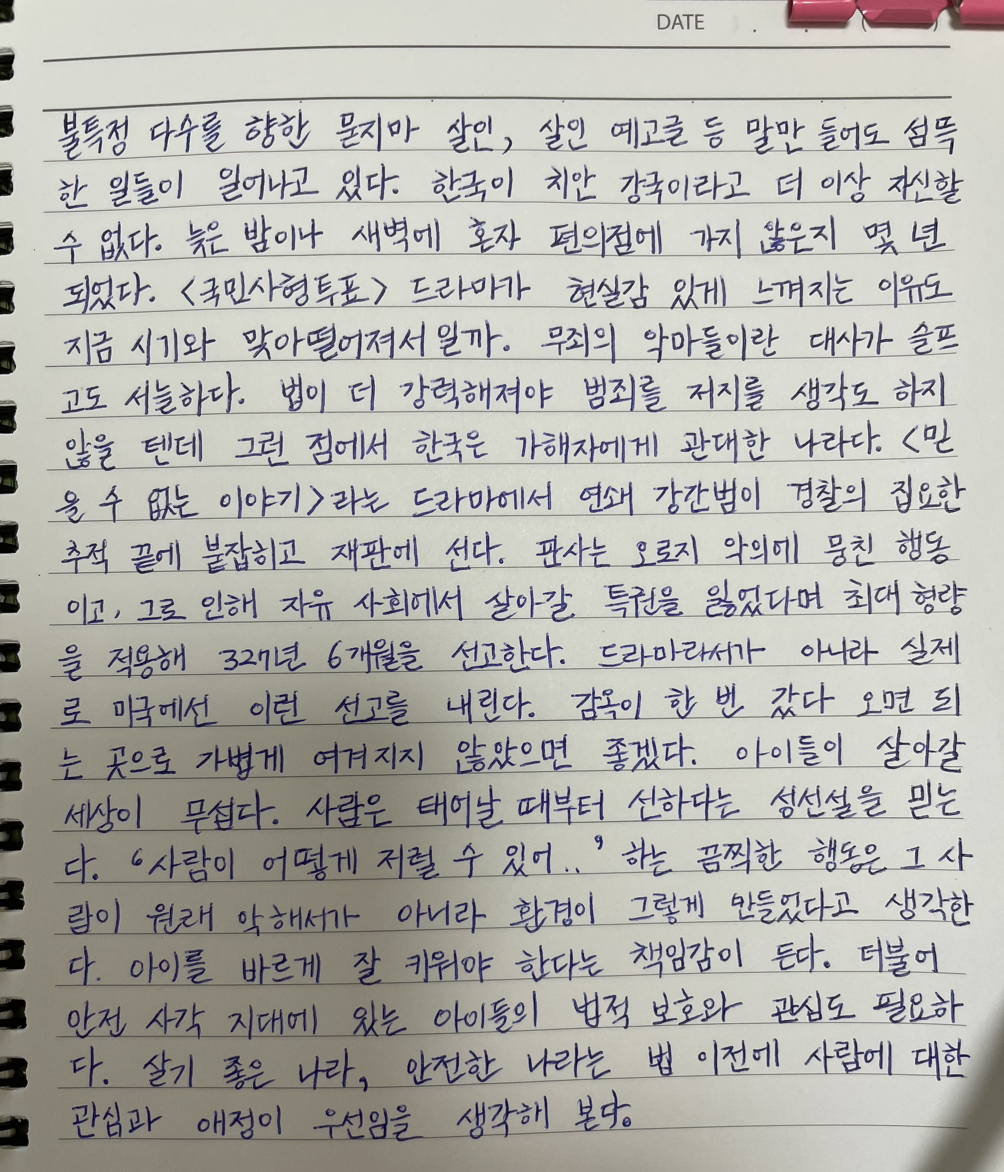 DATE . . ( )
불특정 다수를 향한 묻지마 살인, 살인 예고글 등 말만 들어도 섬뜩
한 일들이 일어나고 있다. 한국이 치안 강국이라고 더 이상 자신할
수 없다. 늦은 밤이나 새벽에 혼자 편의점에 가지 않은지 몇 년
되었다. <국민사형투표> 드라마가 현실감 있게 느껴지는 이유도
지금 시기와 맞아떨어져서일까. 무죄의 악마들이란 대사가 슬프
고도 서늘하다. 법이 더 강력해져야 범죄를 저지를 생각도 하지
않을 텐데 그런 점에서 한국은 가해자에게 관대한 나라다. <믿
을 수 없는 이야기>라는 드라마에서 연쇄 강간범이 경찰의 집요한
추적 끝에 붙잡히고 재판에 선다. 판사는 오로지 악의에 뭉친 행동
이고, 그로 인해 자유 사회에서 살아갈 특권을 잃었다며 최대 형량
을 적용해 327년 6개월을 선고한다. 드라마라서가 아니라 실제
로 미국에선 이런 선고를 내린다. 감옥이 한 번 갔다 오면 되
는 곳으로 가볍게 여겨지지 않았으면 좋겠다. 아이들이 살아갈
세상이 무섭다. 사람은 태어날 때부터 선하다는 성선설을 믿는
다. ‘사람이 어떻게 저럴 수 있어..’ 하는 끔찍한 행동은 그 사
람이 원래 악해서가 아니라 환경이 그렇게 만들었다고 생각한
다. 아이를 바르게 잘 키워야 한다는 책임감이 든다. 더불어
안전 사각 지대에 있는 아이들의 법적 보호와 관심도 필요하
다. 살기 좋은 나라, 안전한 나라는 법 이전에 사람에 대한
관심과 애정이 우선임을 생각해 본다.